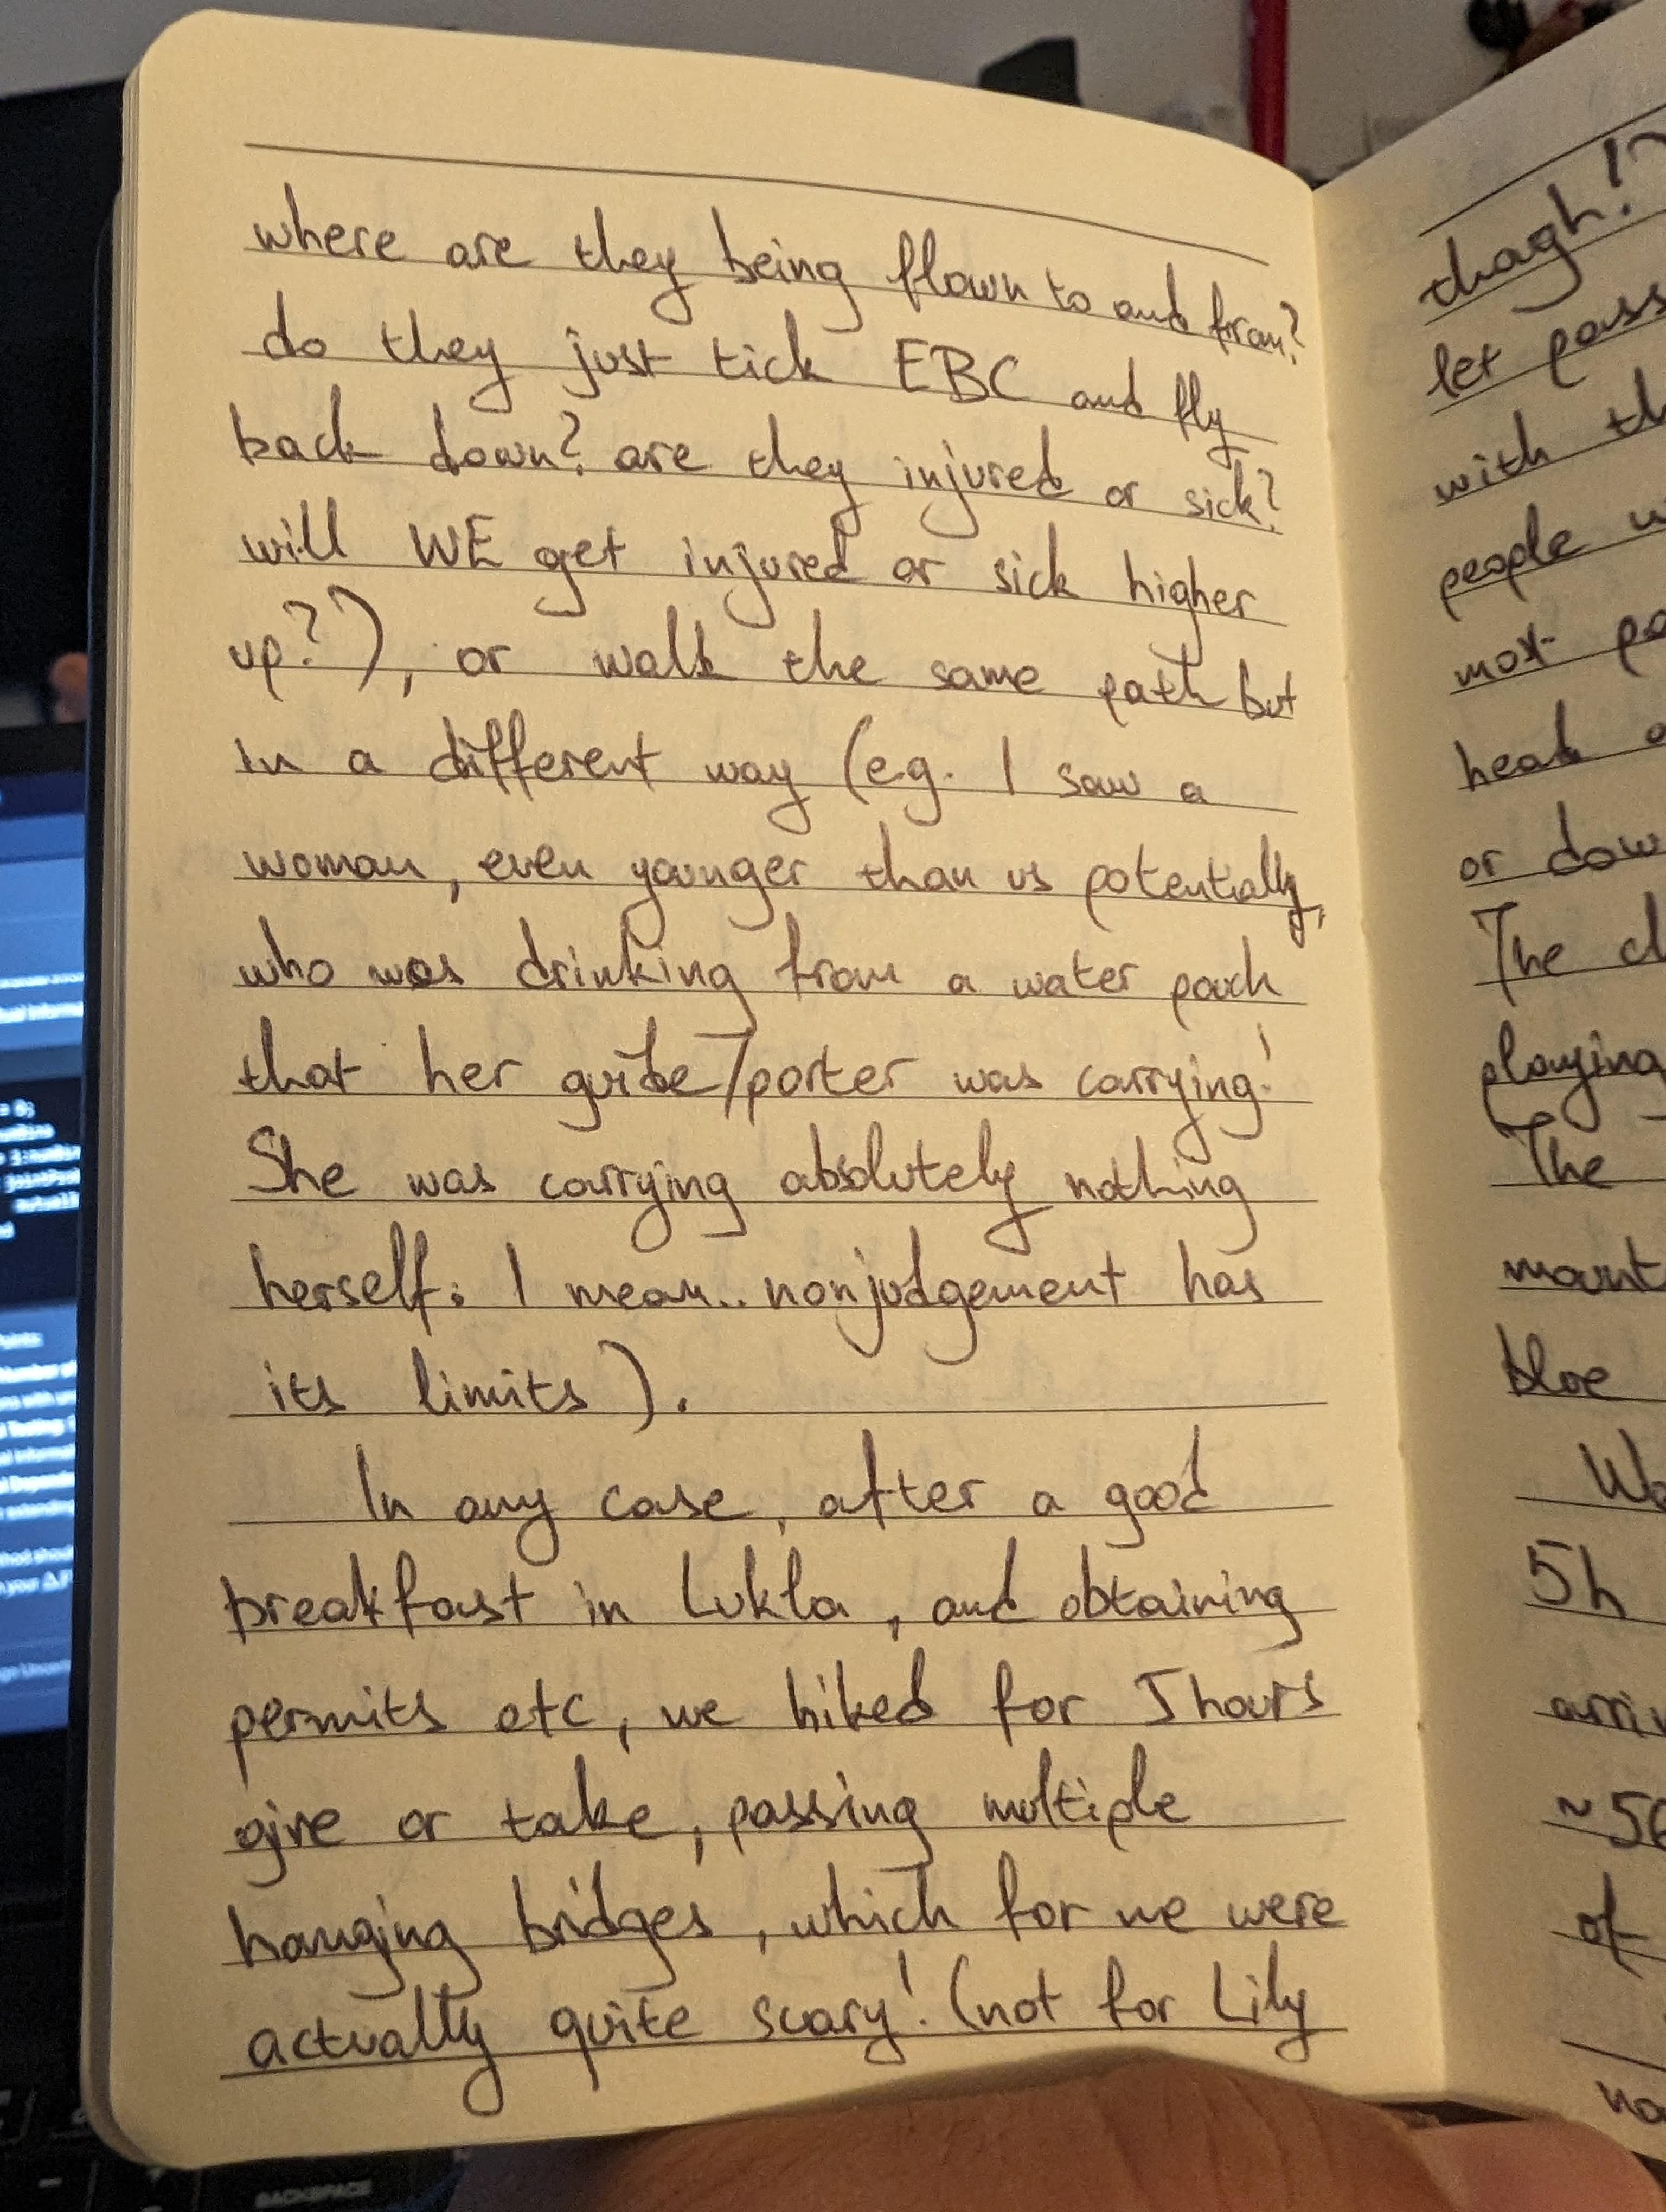 where are they being flown to and from?
do they just tick EBC and fly
back down? are they injured or sick?
will WE get injured or sick higher
up?), or walk the same path but
in a different way (eg. I saw a
woman, even younger than us potentially,
who was drinking from a water pouch
that her guide/porter was carrying!
She was carrying absolutely nothing
herself: I mean.. nonjudgement has
its limits).
In any case, after a good
breakfast in Lukla, and obtaining
permits etc, we hiked for 5 hours
give or take, passing multiple
hanging bridges, which for me were
actually quite scary! (not for Lily
though!)
let pass
with
people
most
head
or
The
playing
The
blue
5h
of
BACKSPACE